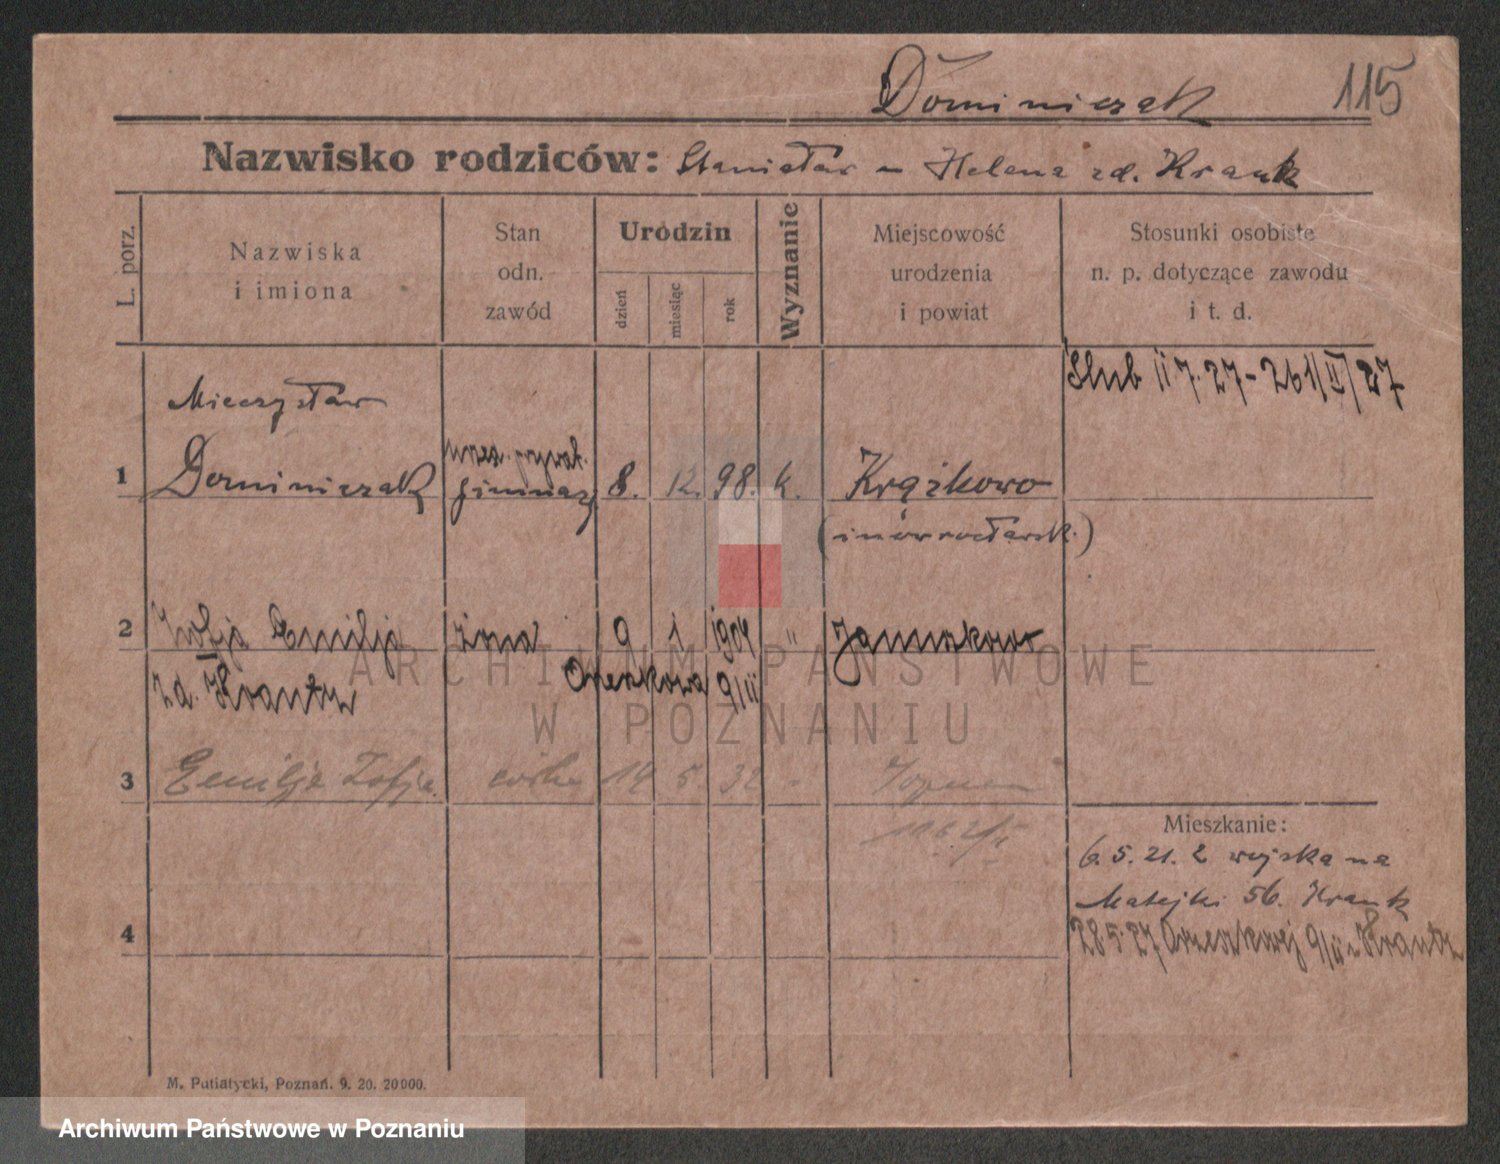 Dominiczak 115
Nazwisko rodziców: Stanisław u Helena zd. Krauk
L. porz.
Nazwiska
i imiona
Stan
odn.
zawód
Urodzin
dzień
miesiąc
rok
Wyznanie
Miejscowość
urodzenia
i powiat
Stosunki osobiste
n. p. dotyczące zawodu
i t. d.
Ślub 11.7.27 - 261/II/27
Mieczysław
urzęd. prywat.
1 Dominiczak gimnaz. 8. 12. 98. k. Krążkowo
(inowrocławsk.)
2 Zofja Emilja żona 9 1 1904 " Januszkowo
zd. Krantz Orzeszkowa 9/II
3 Emilja Zofja córka 14 5. 32 - Poznań
Mieszkanie:
6. 5. 21. z wojska na
Matejki 56. Krauk
4
28.5.27 Orzeszkowej 9/II u Krantz
M. Putiatycki, Poznań. 9. 20. 20000.
ARCHIWUM PAŃSTWOWE
W POZNANIU
Archiwum Państwowe w Poznaniu